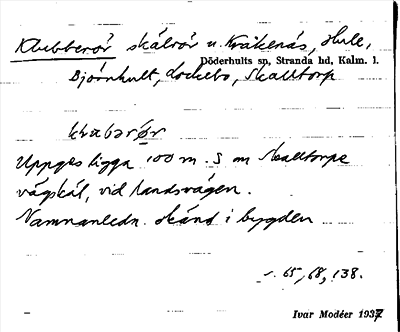 Klubberör skálrör u. Kråkenäs, Hule,
Döderhults sn, Stranda hd, Kalm. l.
Björnhult, Lockebo, Skalltorp
klɷbərør
Uppges ligga 100 m. S om Skalltorps
vägskäl, vid landsvägen.
Namnanledn. okänd i bygden
s. 65, 68, 138.
Ivar Modéer 1937